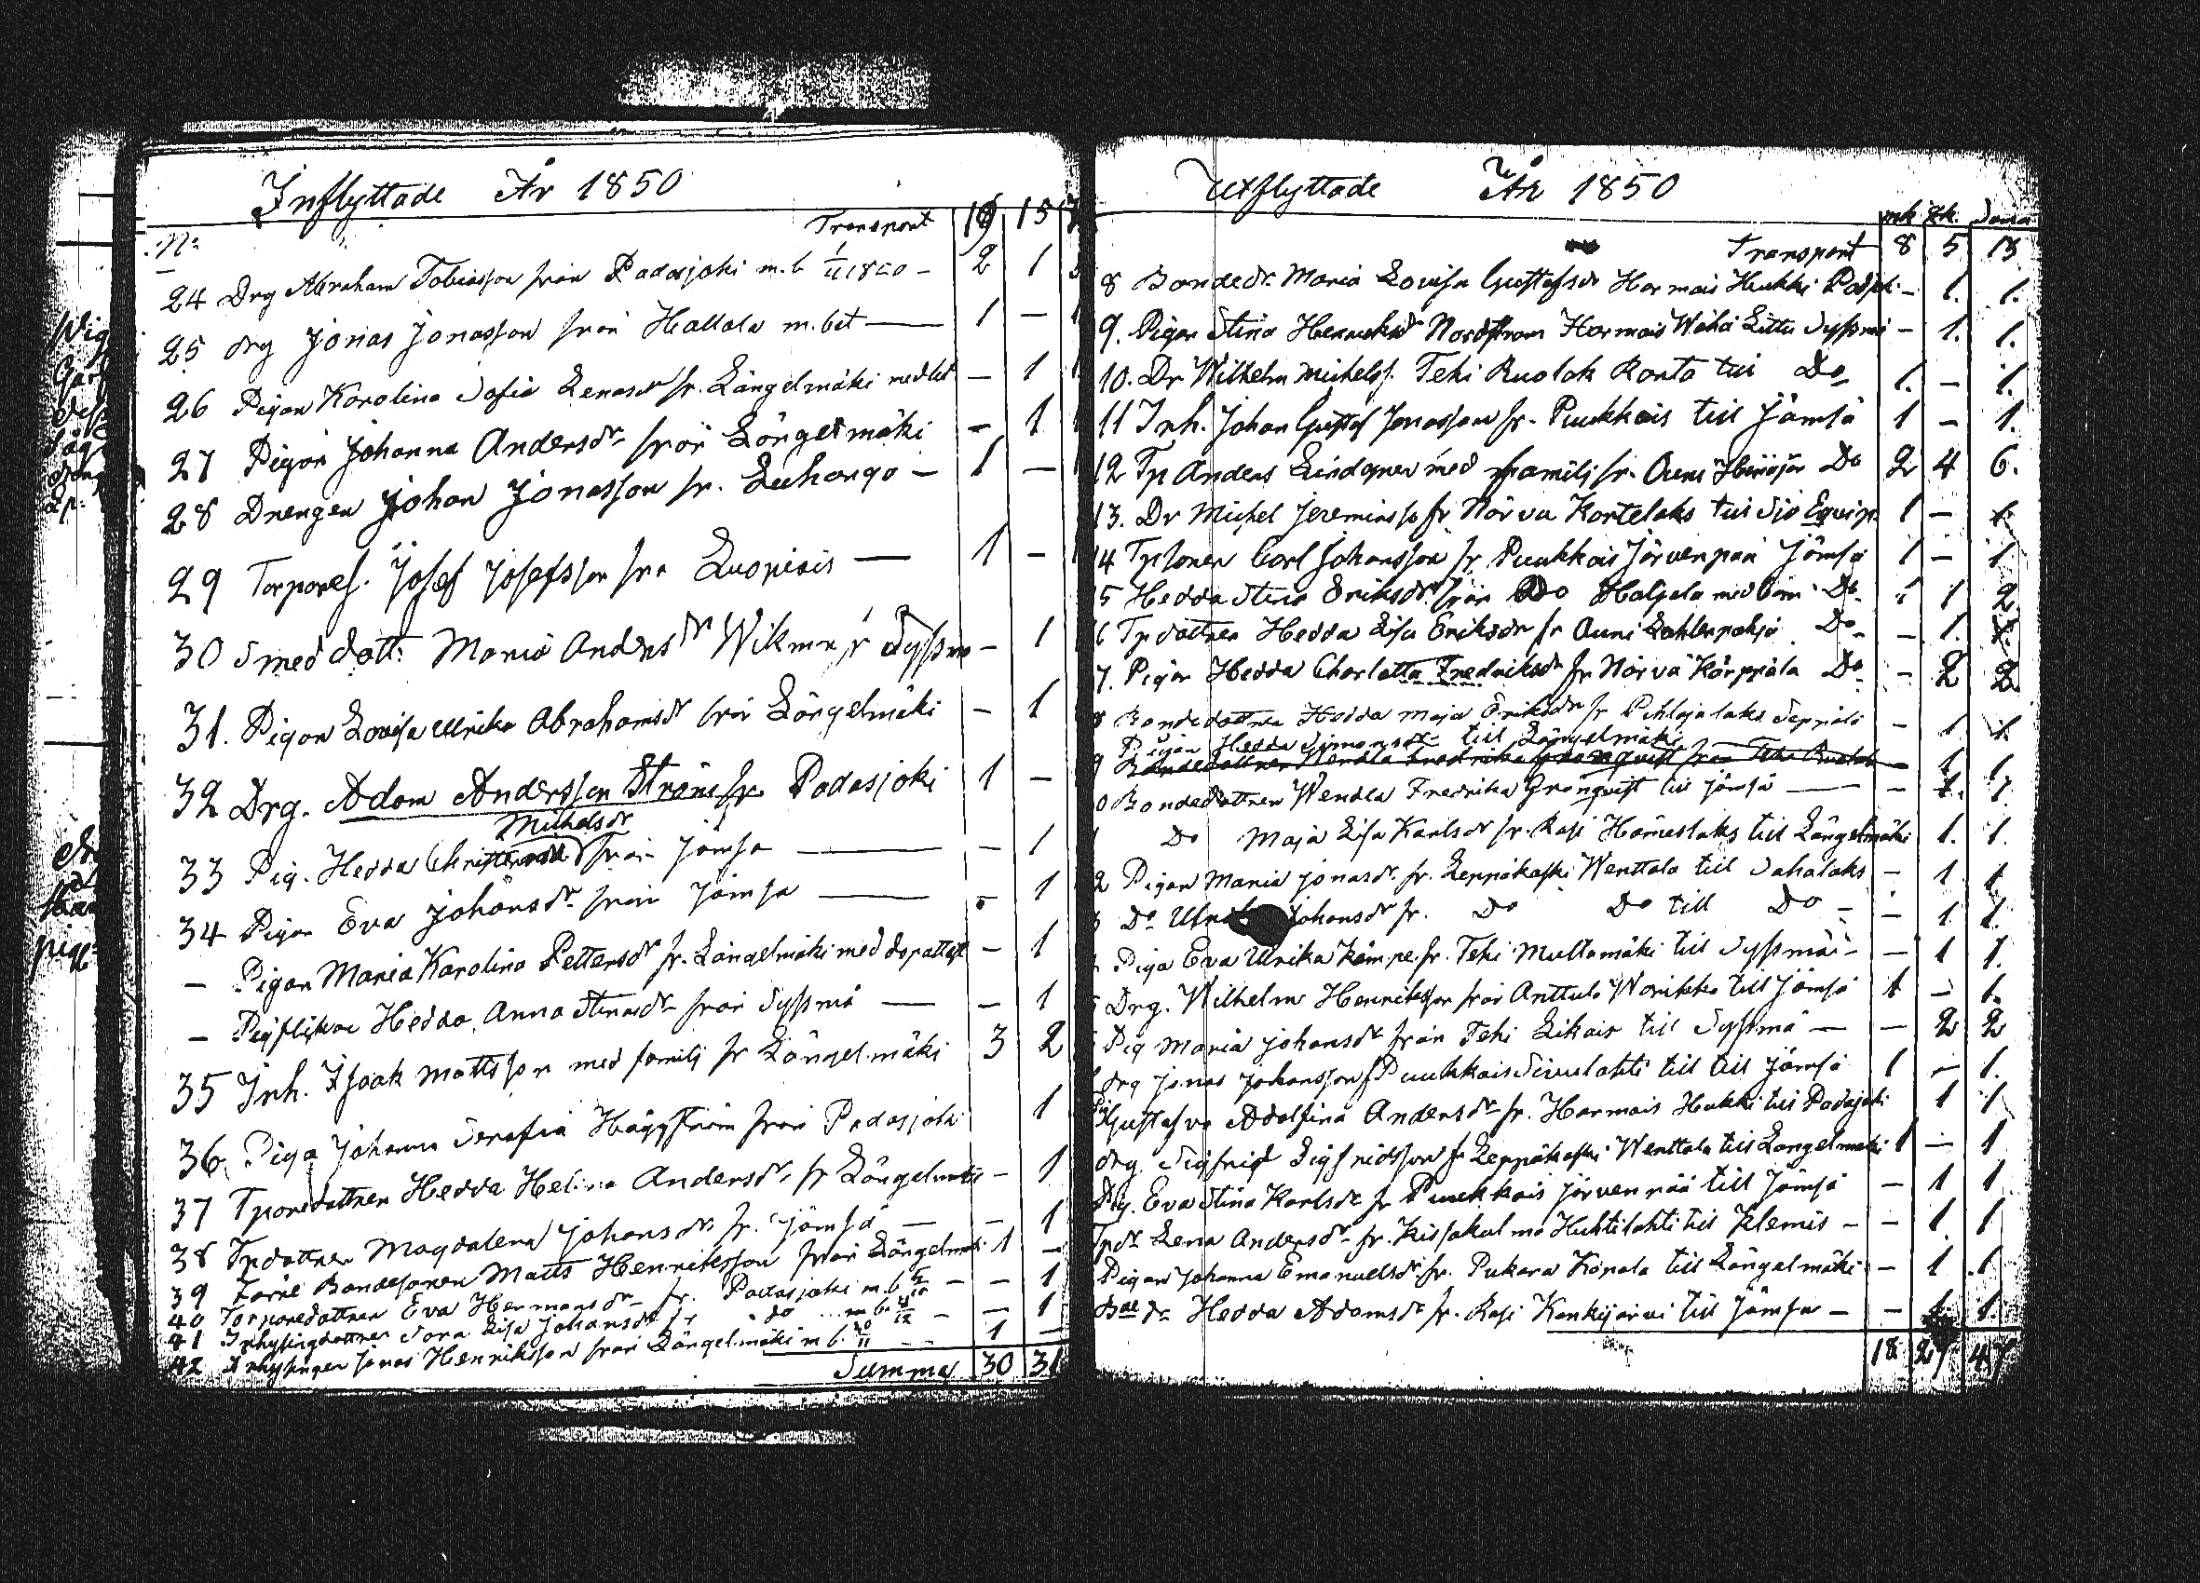 Inflyttade År 1850
No Transport 19 15
24 Drg Abraham Tobiasson från Padasjoki m. b 1/11 1850 - 2 1
25 drg Jonas Jonasson från Hattola m. bet — 1 —
26 Pigan Karolina Sofia Lenasdr fr. Längelmäki med bet — 1
27 Pigan Johanna Andersdr från Längelmäki - 1
28 Drengen Johan Jonasson fr. Luhango - 1 —
29 Torpares. Josef Josefsson frn Kuopiois — 1 —
30 Smed dott: Maria Andersdr Wikman fr Syssmä - 1
31. Pigan Lovisa Ulrika Abrahamsdr från Längelmäki - 1
32 Drg. Adam Andersson Ström fr. Padasjoki 1 —
Mickelsdr
33 Pig. Hedda från Jämsä — — 1
34 Pigan Eva Johansdr från Jämsä — - 1
- Pigan Maria Karolina Pettersdr fr. Längelmäki med dopattest - 1
- Pigflickan Hedda Anna Stinasdr från Syssmä — - 1
35 Inh. Isaak Mattsson med familj fr Längelmäki 3 2
36 Piga Johanna Serafia Häggström från Padasjoki 1
37 Tparedottren Hedda Helina Andersdr fr Längelmäki - 1
38 Tpdottren Magdalena Johansdr fr. Jämsä — - 1
39 Förre Bondesonen Matts Henriksson från Längelmäki 1 -
40 Torparedottren Eva Hermansdr fr. Padasjoki m. b. - - 1
41 Inhysingdottren Sara Lisa Johansdr fr do m b. - — 1
42 Inhysingen Jonas Henriksson från Längelmäki m b. 20/11 — 1 —
Summa 30 31
Utflyttade År 1850
mk qk Summa
Transport 8 5 13
8 Bondedr. Maria Lovisa Gustafsdr Harmois Hukki Padjoki - 1. 1.
9. Pigan Stina Henriksdr Nordström Harmois Wähä Littu Syssmä - 1. 1.
10. Dr Wilhelm Michelss. Tehi Ruolak Ranta till Do 1. - 1.
11 Inh. Johan Gustaf Jonasson fr. Puukkois till Jämsä 1 - 1.
12 Tp Anders Lindgren med familj fr. Auni Do 2 4 6.
13. Dr Michel Jeremiass fr Närvä Kortelaks till Sjö Equip. 1 - 1.
14 Tpsonen Carl Johansson fr Puukkois Järvenpää Jämsä 1 - 1
5 Hedda Stina Eriksdr från Do Haljala med barn Do 1 1 2
6 Tpdottren Hedda Lisa Eriksdr fr Auni Do - 1. 1.
7. Pigan Hedda Charlotta Fredriksdr fr Närvä Körppälä Do - 2 2
8 Bondedottren Hedda Maja Eriksdr fr Pihlajalaks Seppälä - 1 1
Pigan Hedda Simonsdr till Längelmäki
9 Bondedottren Wendla Fredrika Granqvist från Tehi Ruolak - 1 1
0 Bondedottren Wendla Fredrika Granqvist till Jämsä — - 1. 1
1 Do Maja Lisa Karlsdr fr. Rasi Hämeslaks till Längelmäki 1. 1.
2 Pigan Maria Jonasdr. fr. Leppäkoski Wenttola till Sahalaks - 1 1
3 Do Johansdr fr. Do Do till Do - - 1 1.
Piga Eva Ulrika Kämpe fr. Tehi Multamäki till Syssmä - - 1 1.
Drg. Wilhelm Henriksson från Anttula Warikko till Jämsä 1 - 1.
Pig Maria Johansdr från Tehi Likais till Syssmä — - 2 2
drg Jonas Johansson fr Puukkois Sivulahti till till Jämsä 1 - 1.
Gustafva Adolfina Andersdr fr. Harmois Hukki till Padajoki 1 1
drg. Sigfrid Sigfridsson fr Leppäkoski Wenttola till Längelmäki 1 - 1
Pig. Eva Stina Karlsdr fr Puukkois Järvenpää till Jämsä - 1 1
Tpdr Lena Andersdr fr. Kissakulma Huhtilahti till Klemis - - 1. 1
Pigan Johanna Emanuelsdr fr. Pukara till Längelmäki - 1 1
Bdedr Hedda Adamsdr fr. Rasi Kankijärvi till Jämsä - - 1 1.
18 29 47